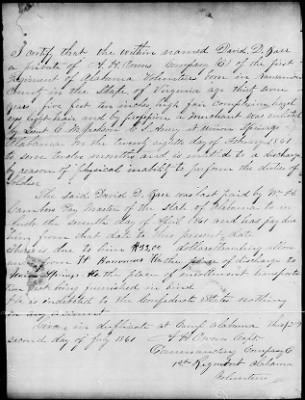 I certify that the within named David D. Karr
a private of A. H. Owens Company (C) of the first
Regiment of Alabama Volunteers born in
County in the State of Virginia age thirty
years five feet ten inches high fair complexion
eyes light hair and by profession a merchant was enlisted
by Lieut C. McPherson C. S. Army at Union Springs
Alabama on the twenty eighth day of February 1861
to serve twelve months and is entitled to a discharge
by reason of physical inability to perform the duties of
soldier
The said David D. Karr was last paid by Wm H
Pay Master of the State of Alabama to in
clude the day of April 1861 and has pay due
him from that date to this present date
there is due to him dollars
from place of discharge to
Union Springs the place of enrollment transporta
tion not being furnished in kind
He is indebted to the Confederate States nothing
on any account
Given in duplicate at Camp Alabama this
second day of July 1861
A H Owens Capt
Commanding Company C
1st Regiment Alabama
Volunteers